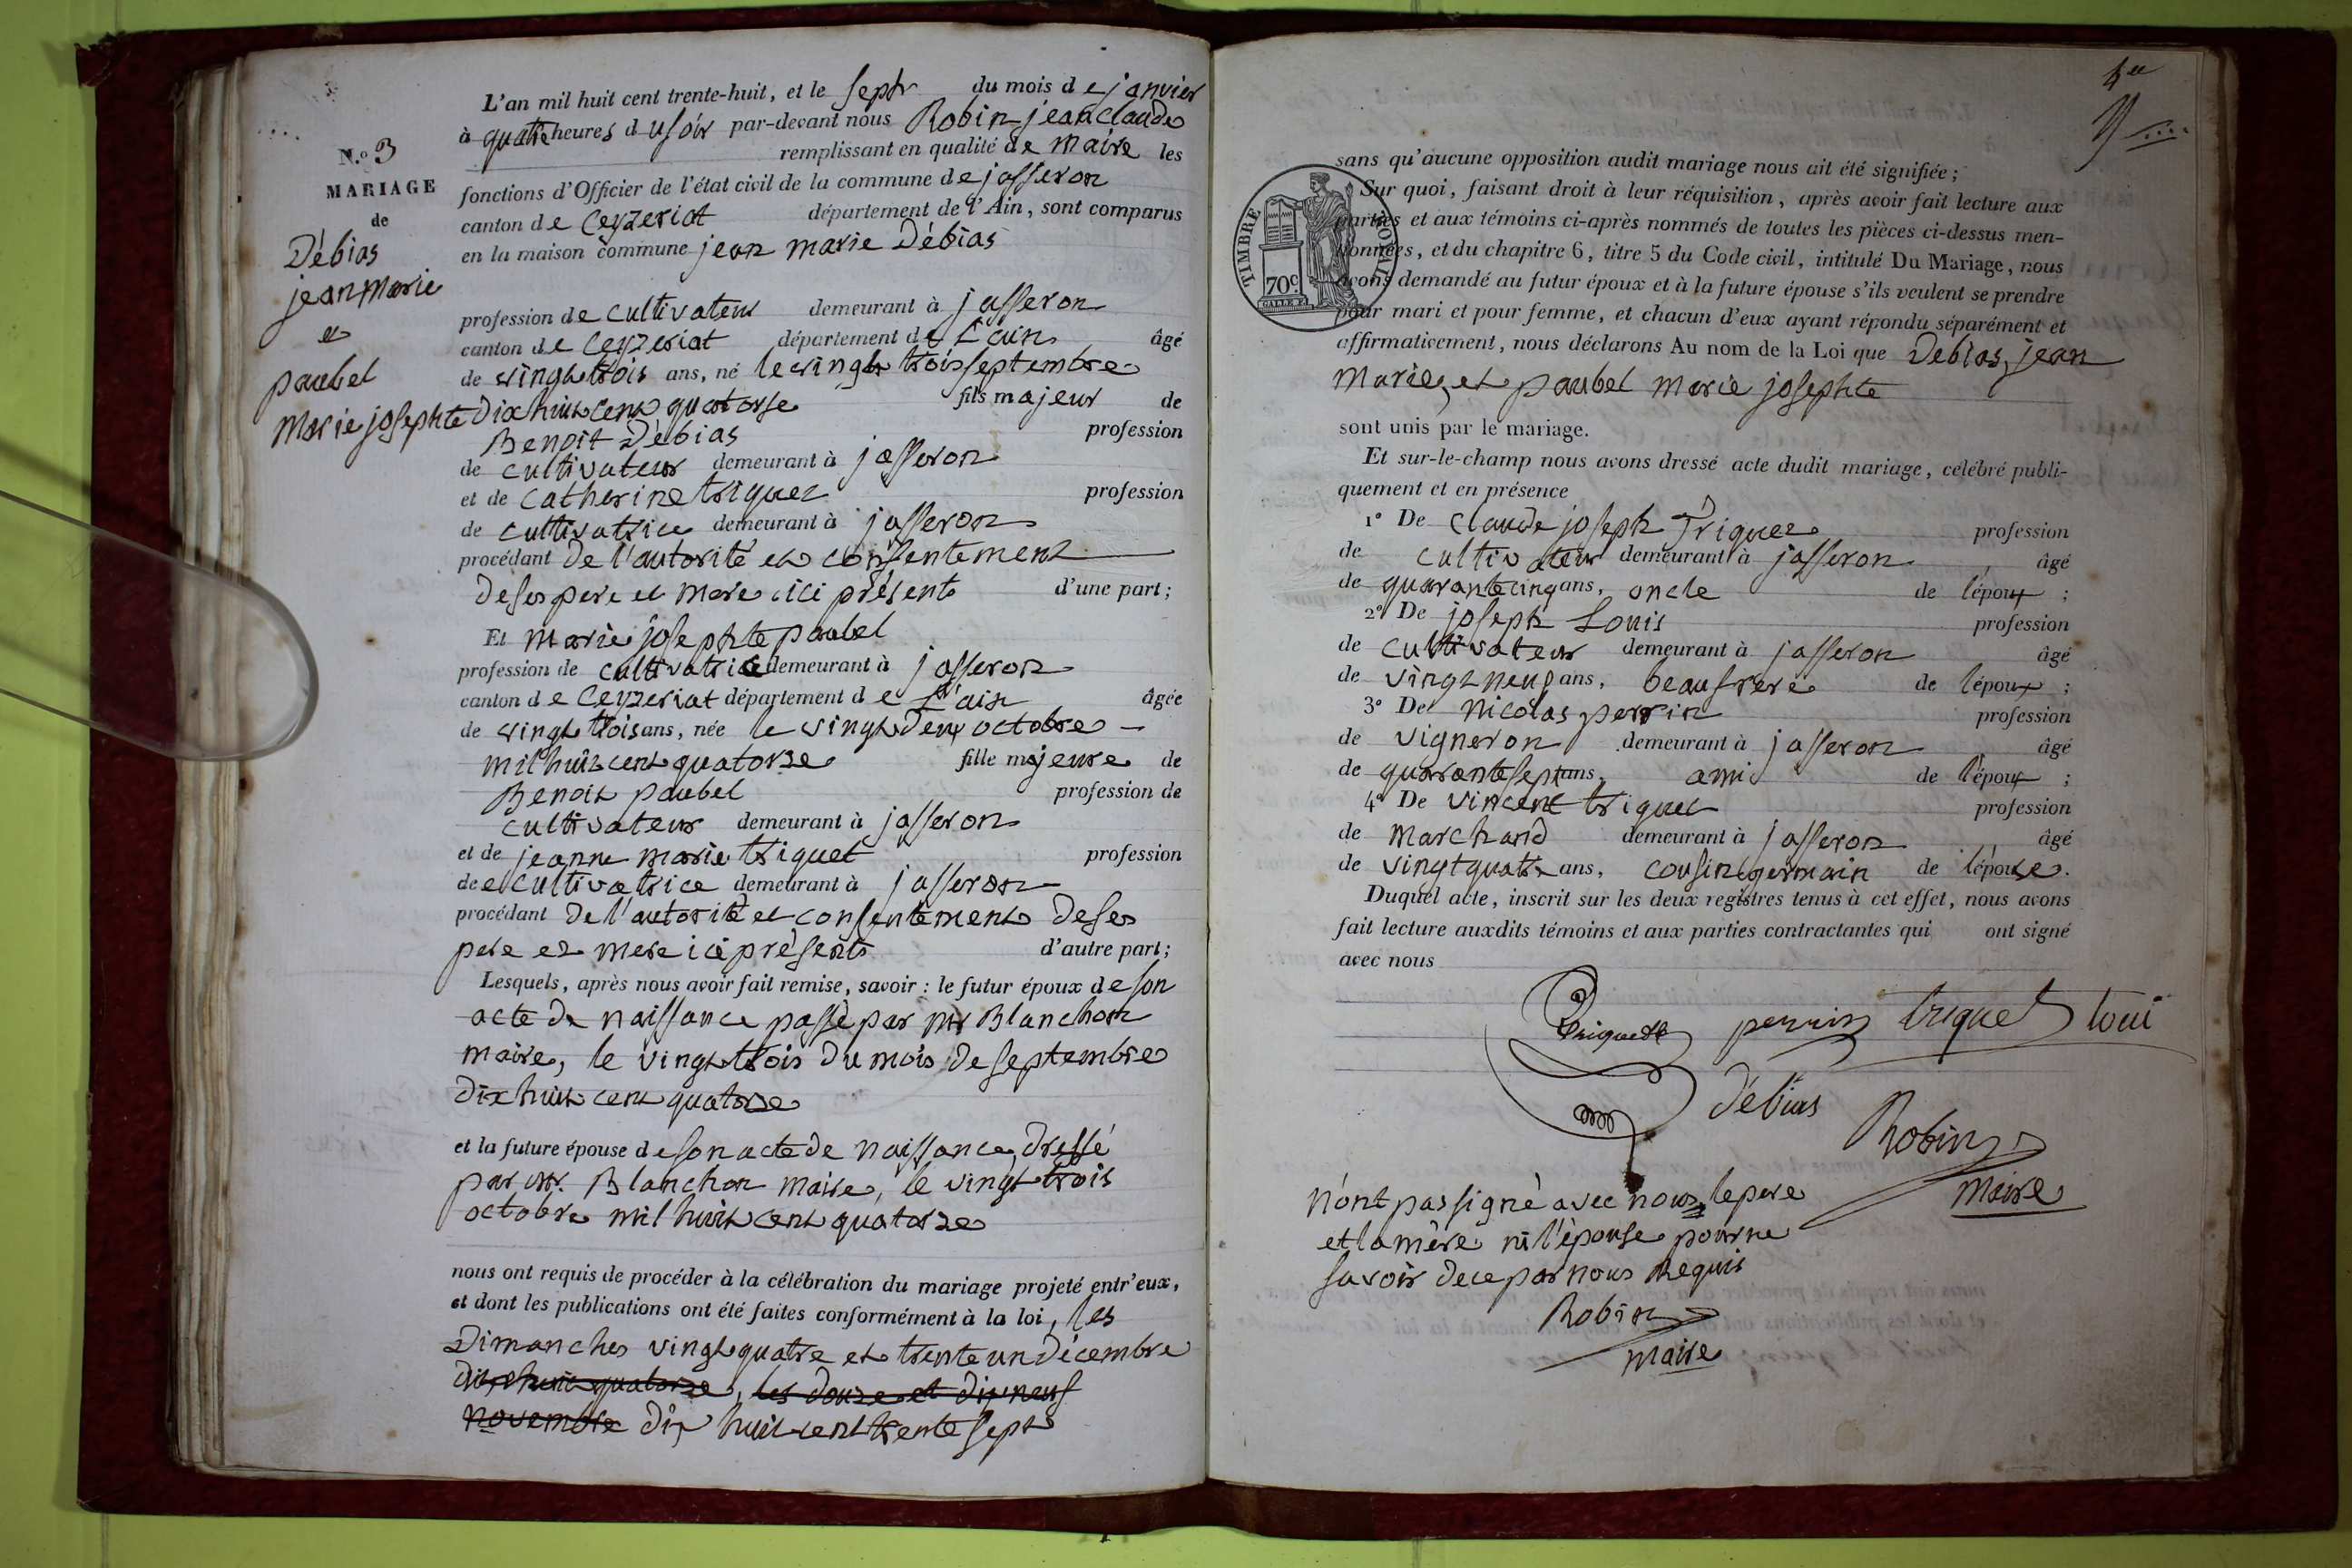 N.o 3
MARIAGE
de
Débias
jean marie
et
paubel
marie josephte
L'an mil huit cent trente-huit, et le sept du mois de janvier
à quatre heures du soir par-devant nous Robin jean claude
remplissant en qualité de maire les
fonctions d'Officier de l'état civil de la commune de jasseron
canton de Ceyzeriat département de l'Ain, sont comparus
en la maison commune jean marie Débias
profession de cultivateur demeurant à jasseron
canton de Ceyzeriat département de L'ain âgé
de vingt trois ans, né le vingt trois septembre
dix huit cent quatorse fils majeur de
Benoit Débias profession
de cultivateur demeurant à jasseron
et de Catherine triquet profession
de cultivatrice demeurant à jasseron
procédant de l'autorité et consentement
de ses pere et mere ici présent d'une part;
Et marie josephte paubel
profession de cultivatrice demeurant à jasseron
canton de Ceyzeriat département de L'ain âgée
de vingt trois ans, née le vingt deux octobre
mil huit cent quatorze fille majeure de
Benoit paubel profession de
cultivateur demeurant à jasseron
et de jeanne marie triquet profession
de cultivatrice demeurant à jasseron
procédant de l'autorité et consentement de ses
pere et mere ici présents d'autre part;
Lesquels, après nous avoir fait remise, savoir: le futur époux de son
acte de naissance passé par mr Blanchon
maire, le vingt trois du mois de septembre
dix huit cent quatorze
et la future épouse de son acte de naissance, dressé
par mr. Blanchon maire, le vingt trois
octobre mil huit cent quatorze
nous ont requis de procéder à la célébration du mariage projeté entr'eux,
et dont les publications ont été faites conformément à la loi, les
Dimanches vingt quatre et trente un décembre
dix huit quatorze, les douze et dix neuf
novembre dix huit cent trente sept
sans qu'aucune opposition audit mariage nous ait été signifiée;
TIMBRE ROYAL
70c.
Sur quoi, faisant droit à leur réquisition, après avoir fait lecture aux
parties et aux témoins ci-après nommés de toutes les pièces ci-dessus men-
tionnées, et du chapitre 6, titre 5 du Code civil, intitulé Du Mariage, nous
avons demandé au futur époux et à la future épouse s'ils veulent se prendre
pour mari et pour femme, et chacun d'eux ayant répondu séparément et
affirmativement, nous déclarons Au nom de la Loi que Debias, jean
marie, et paubel marie josephte
sont unis par le mariage.
Et sur-le-champ nous avons dressé acte dudit mariage, célébré publi-
quement et en présence
1o De Claude joseph Triquet profession
de cultivateur demeurant à jasseron âgé
de quarante cinq ans, oncle de lépoux ;
2o De joseph Louis profession
de cultivateur demeurant à jasseron âgé
de vingt neuf ans, beaufrere de lépoux ;
3o De nicolas perrin profession
de vigneron demeurant à jasseron âgé
de quarante sept ans, ami de lépoux ;
4o De vincent triquet profession
de marchand demeurant à jasseron âgé
de vingt quatre ans, cousin germain de lépouse.
Duquel acte, inscrit sur les deux registres tenus à cet effet, nous avons
fait lecture auxdits témoins et aux parties contractantes qui ont signé
avec nous
perrin triquet loui
Débias
Robin
maire
n'ont pas signé avec nous, le pere
et la mère ni l'épouse pour ne
savoir de ce par nous Requis
Robin
maire